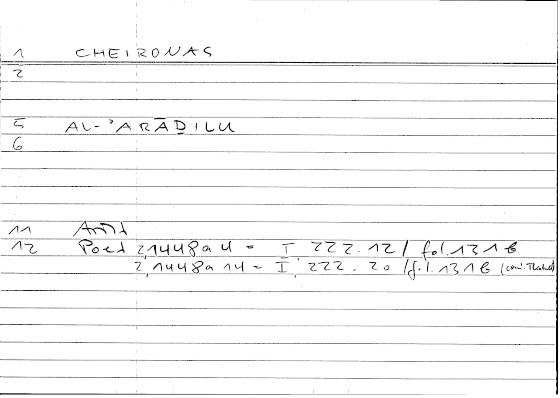 1 CHEIRONAS
2
5 AL-ʾARĀḌILU
6
11
12 Poet 2,1448a4 = I 222.12 / fol. 131b
2,1448a14 = I, 222.20 / fol. 131b